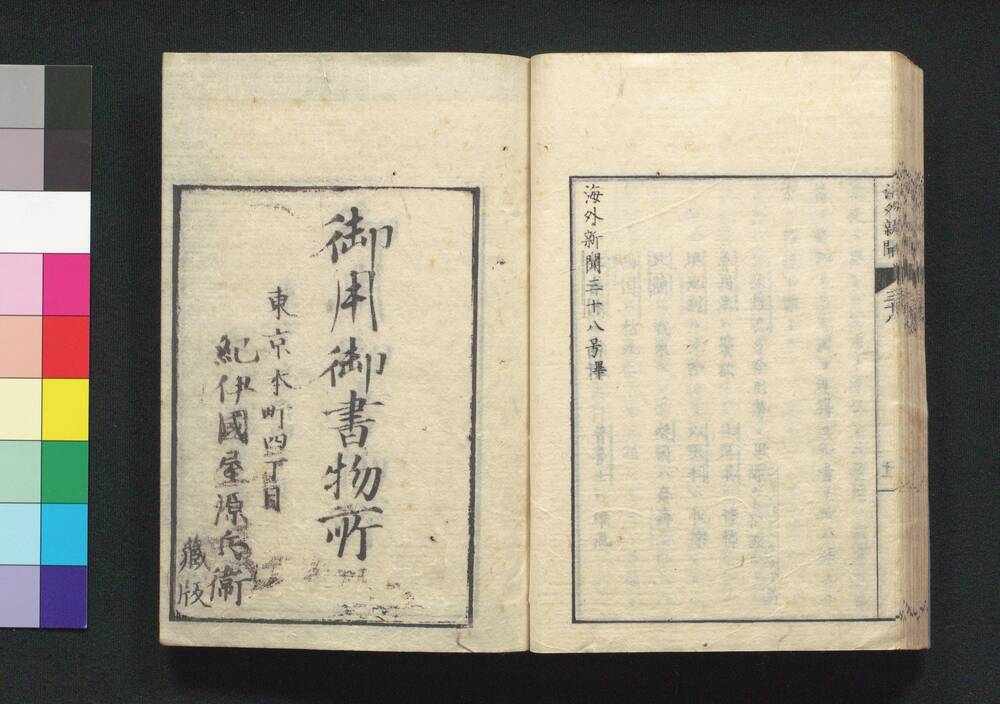 海外新聞
三十八
十一
海外新聞三十八号畢
御用御書物所
東京本町四丁目
紀伊國屋源兵衛
藏版